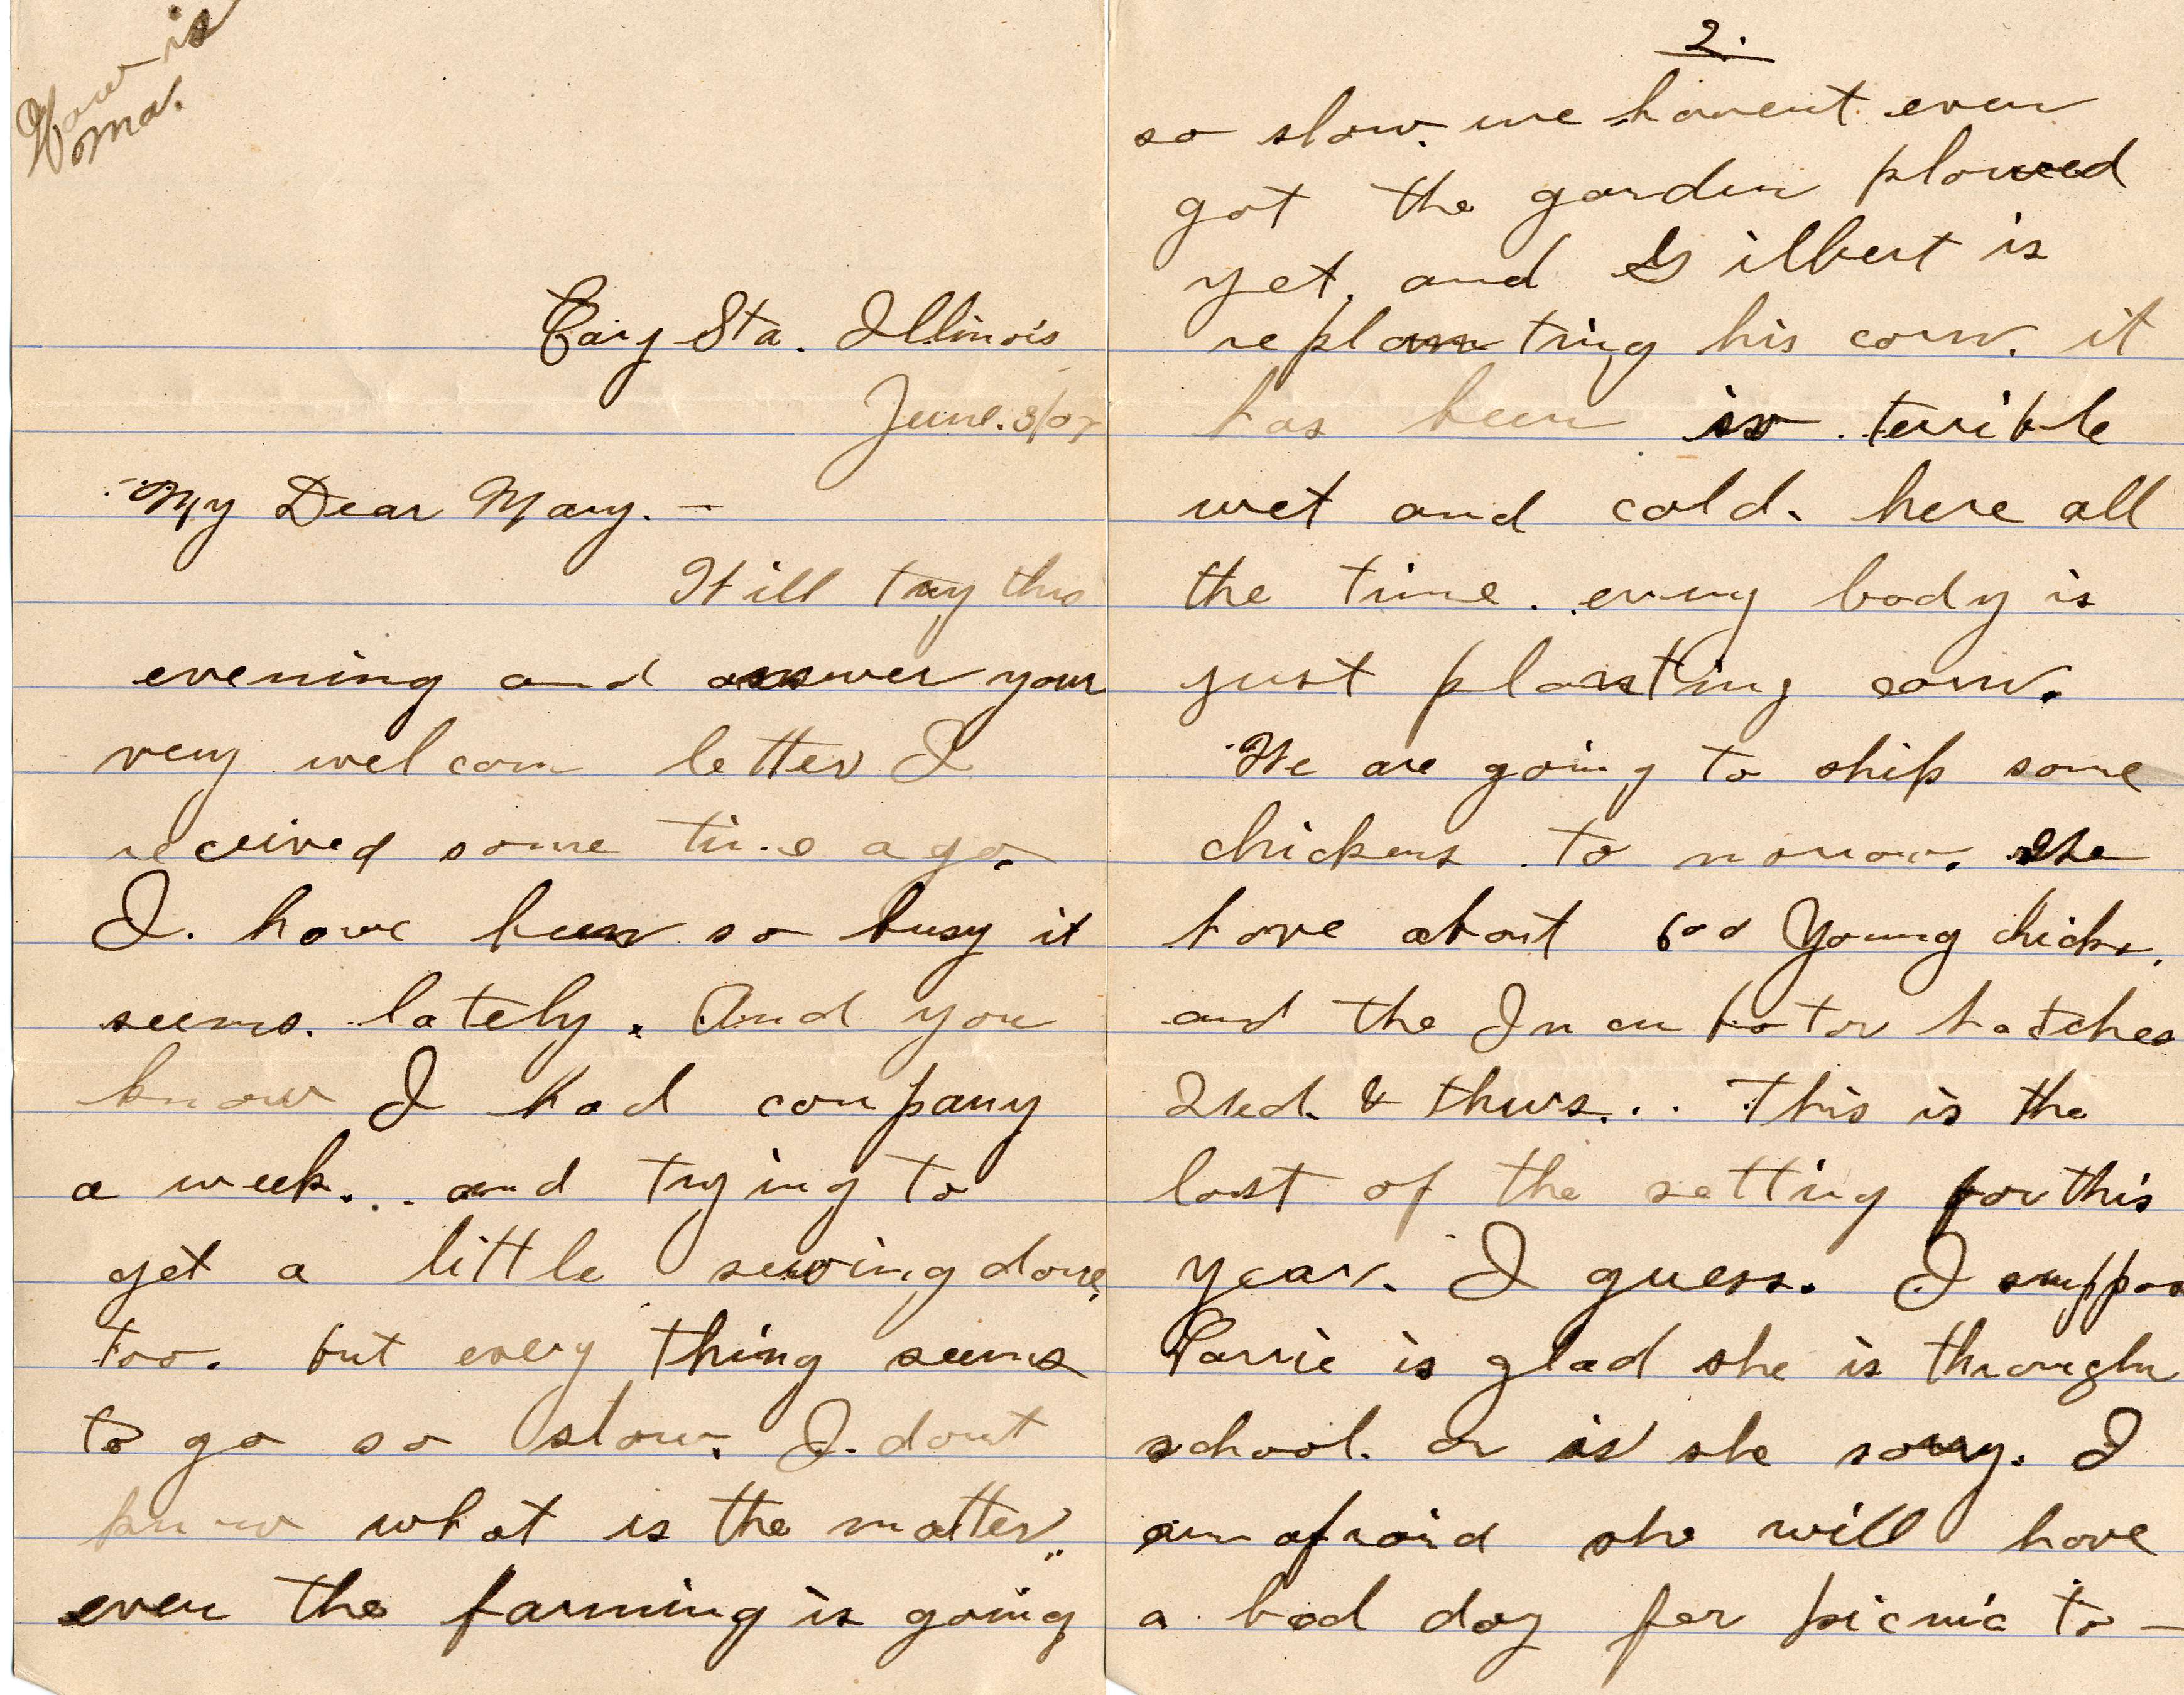 How is
ma.
Cary Sta. Illinois
June. 3/07
My Dear Mary. —
Will try this
evening and answer your
very wel com letter I
received some time ago.
I. have been so busy it
seems. lately. And you
know I had company
a week. . and trying to
get a little sewing done,
too. but every thing seems
to go so slow. I. dont
know what is the matter.
even the farming is going
2.
so slow. we havent even
got the garden plowed
yet. and Gilbert is
replanting his corn. it
has been so terrible
wet and cold. here all
the time. every body is
just planting corn.
We are going to ship some
chickens to morrow. We
have about 600 Young chicks.
and the Incubator hatches
Wed. & thurs. . . This is the
last of the setting for this
year. I guess. I suppos
Carrie is glad she is through
school. or is she sorry. I
am afraid she will have
a bad day for picnic to —